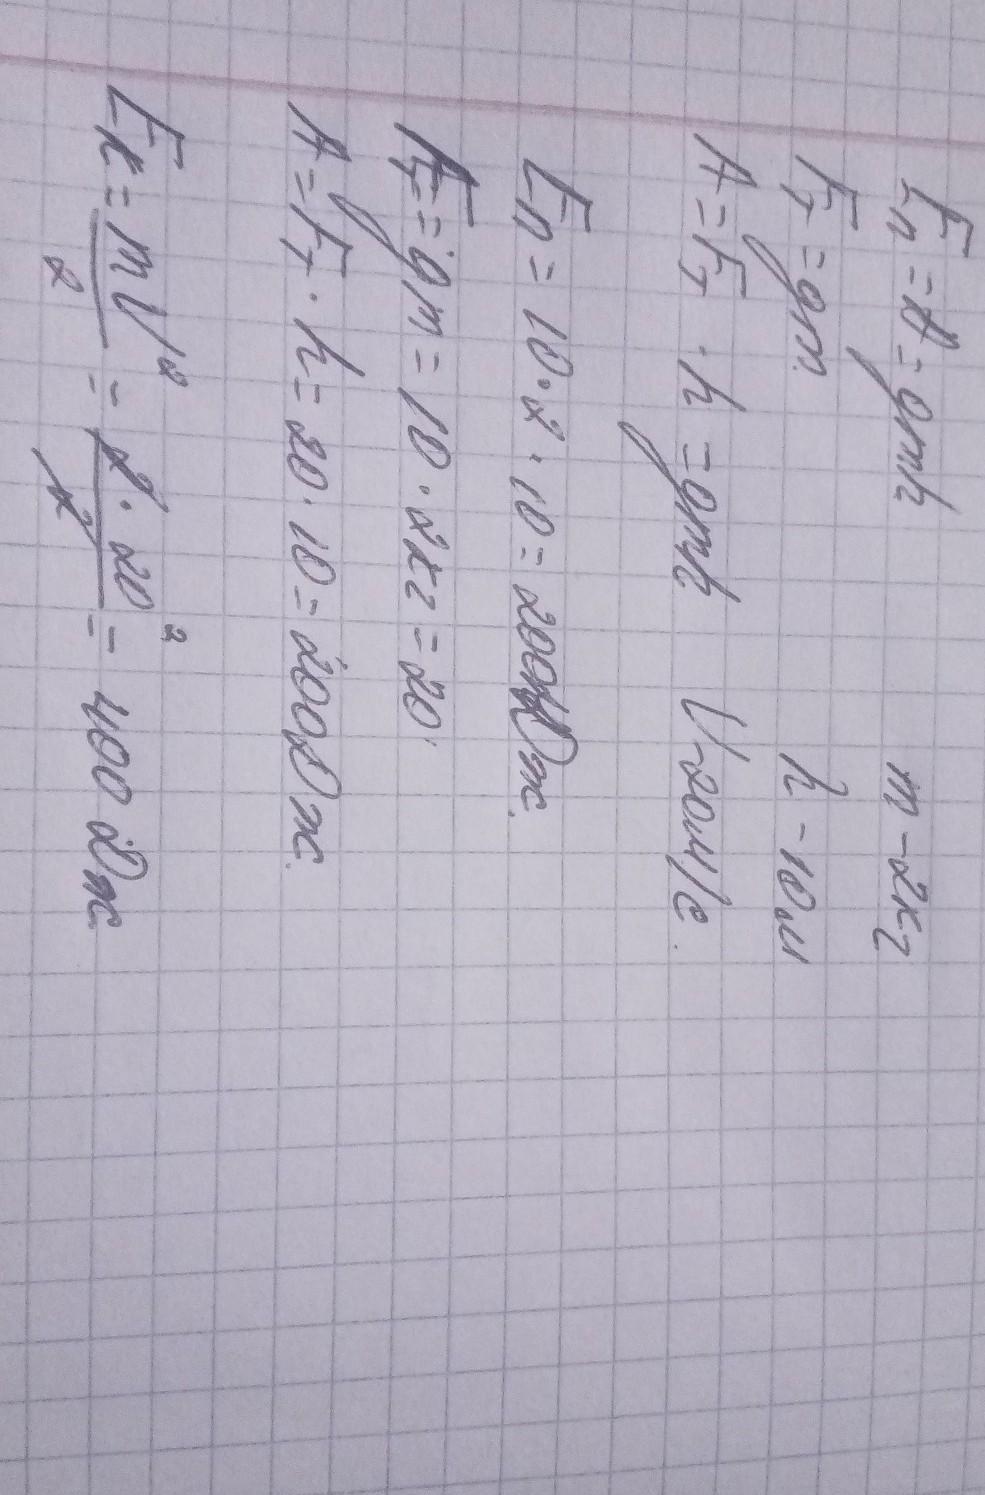 Eп = A = gmh m - 2кг
Fт = gm h - 10м
A = Fт · h = gmh V - 20м/с.
Eп = 10 · 2 · 10 = 200Дж.
Fт = gm = 10 · 2кг = 20.
A = Fт · h = 20 · 10 = 200Дж.
Eк = mV²/2 = 2 · 20²/2 = 400Дж